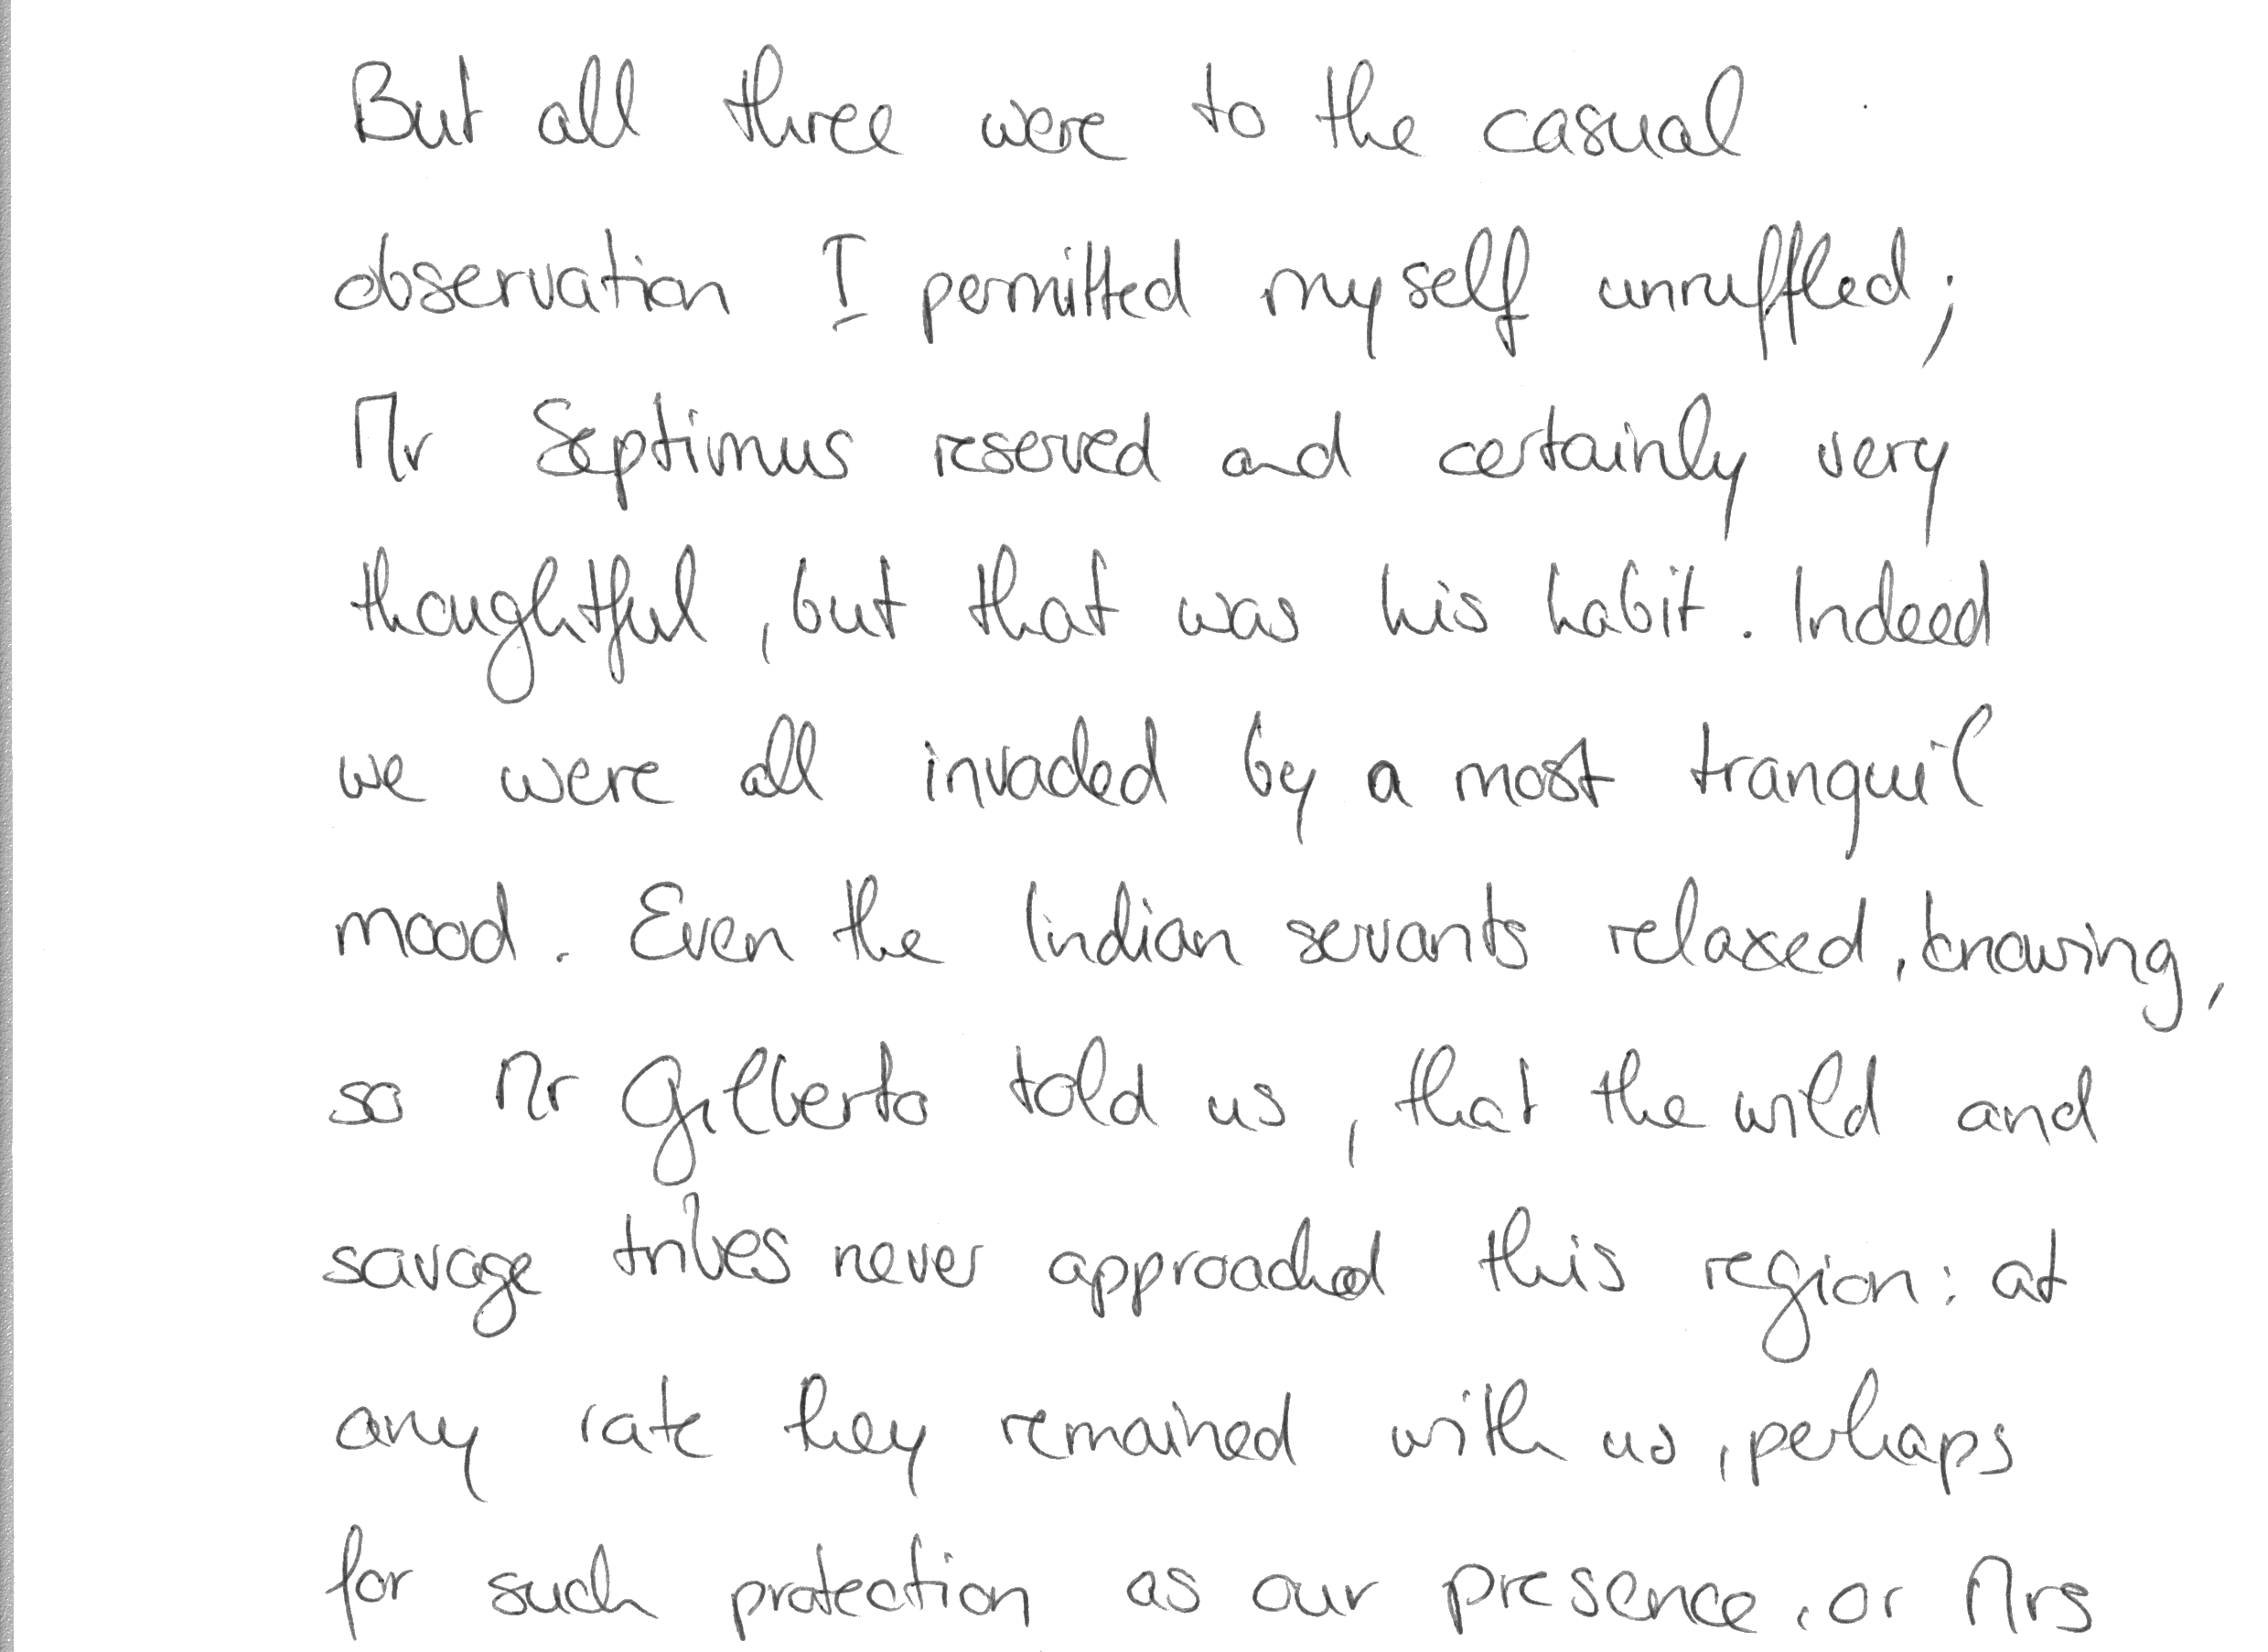 But all three were to the casual
observation I permitted myself unruffled;
Mr Septimus reserved and certainly very
thoughtful, but that was his habit. Indeed
we were all invaded by a most tranquil
mood. Even the Indian servants relaxed, knowing,
so Mr Gilberto told us, that the wild and
savage tribes never approached this region: at
any rate they remained with us, perhaps
for such protection as our presence, or Mrs